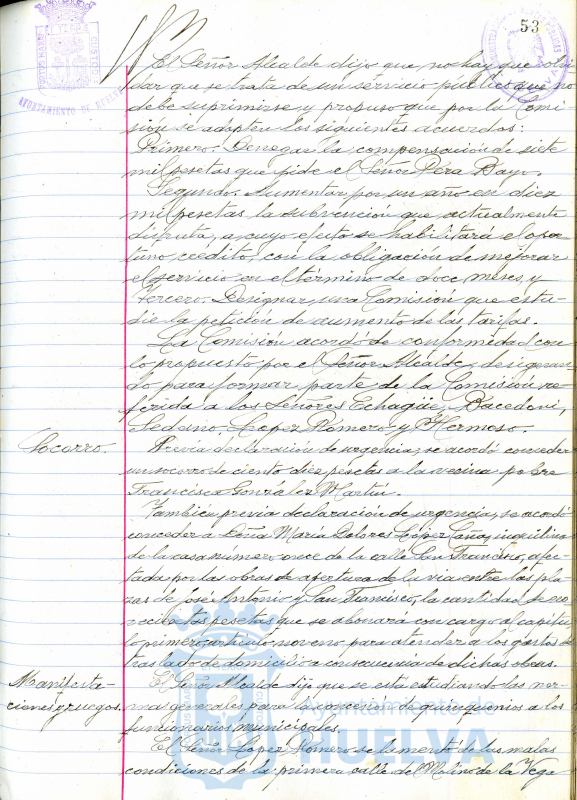 53
AYUNTAMIENTO DE HUELVA
El Señor Alcalde dijo que no hay que olvi-
dar que se trata de un servicio público que no
debe suprimirse y propuso que por la Comi-
sión se adopten los siguientes acuerdos:
Primero. Denegar la compensación de siete
mil pesetas que pide el Señor Pera Bayo.
Segundo. Aumentar por un año en diez
mil pesetas la subvención que actualmente
disfruta, a cuyo efecto se habilitará el opor-
tuno crédito, con la obligación de mejorar
el servicio en el término de doce meses, y
Tercero. Designar una Comisión que estu-
die la petición de aumento de las tarifas.
La Comisión acordó de conformidad con
lo propuesto por el Señor Alcalde, designan-
do para formar parte de la Comisión re-
ferida a los Señores Echagüe, Bacedoni,
Seduno, López Romero y P. Hermoso.
Socorro.
Previa declaración de urgencia, se acordó conceder
un socorro de ciento diez pesetas a la vecina pobre
Francisca González Martín.
También previa declaración de urgencia, se acordó
conceder a Doña María Dolores López Cañas, inquilina
de la casa número once de la calle San Francisco, afec-
tada por las obras de apertura de la vía entre las pla-
zas de José Antonio y San Francisco, la cantidad de
pesetas que se abonará con cargo al capítu-
lo primero, artículo noveno para atender a los gastos de
traslado de domicilio a consecuencia de dichas obras.
Manifesta-
ciones y ruegos.
El Señor Alcalde dijo que se está estudiando las nor-
mas generales para la concesión de quinquenios a los
funcionarios municipales.
El Señor López Romero se lamentó de las malas
condiciones de la primera calle del Molino de la Vega
Ayuntamiento de
HUELVA